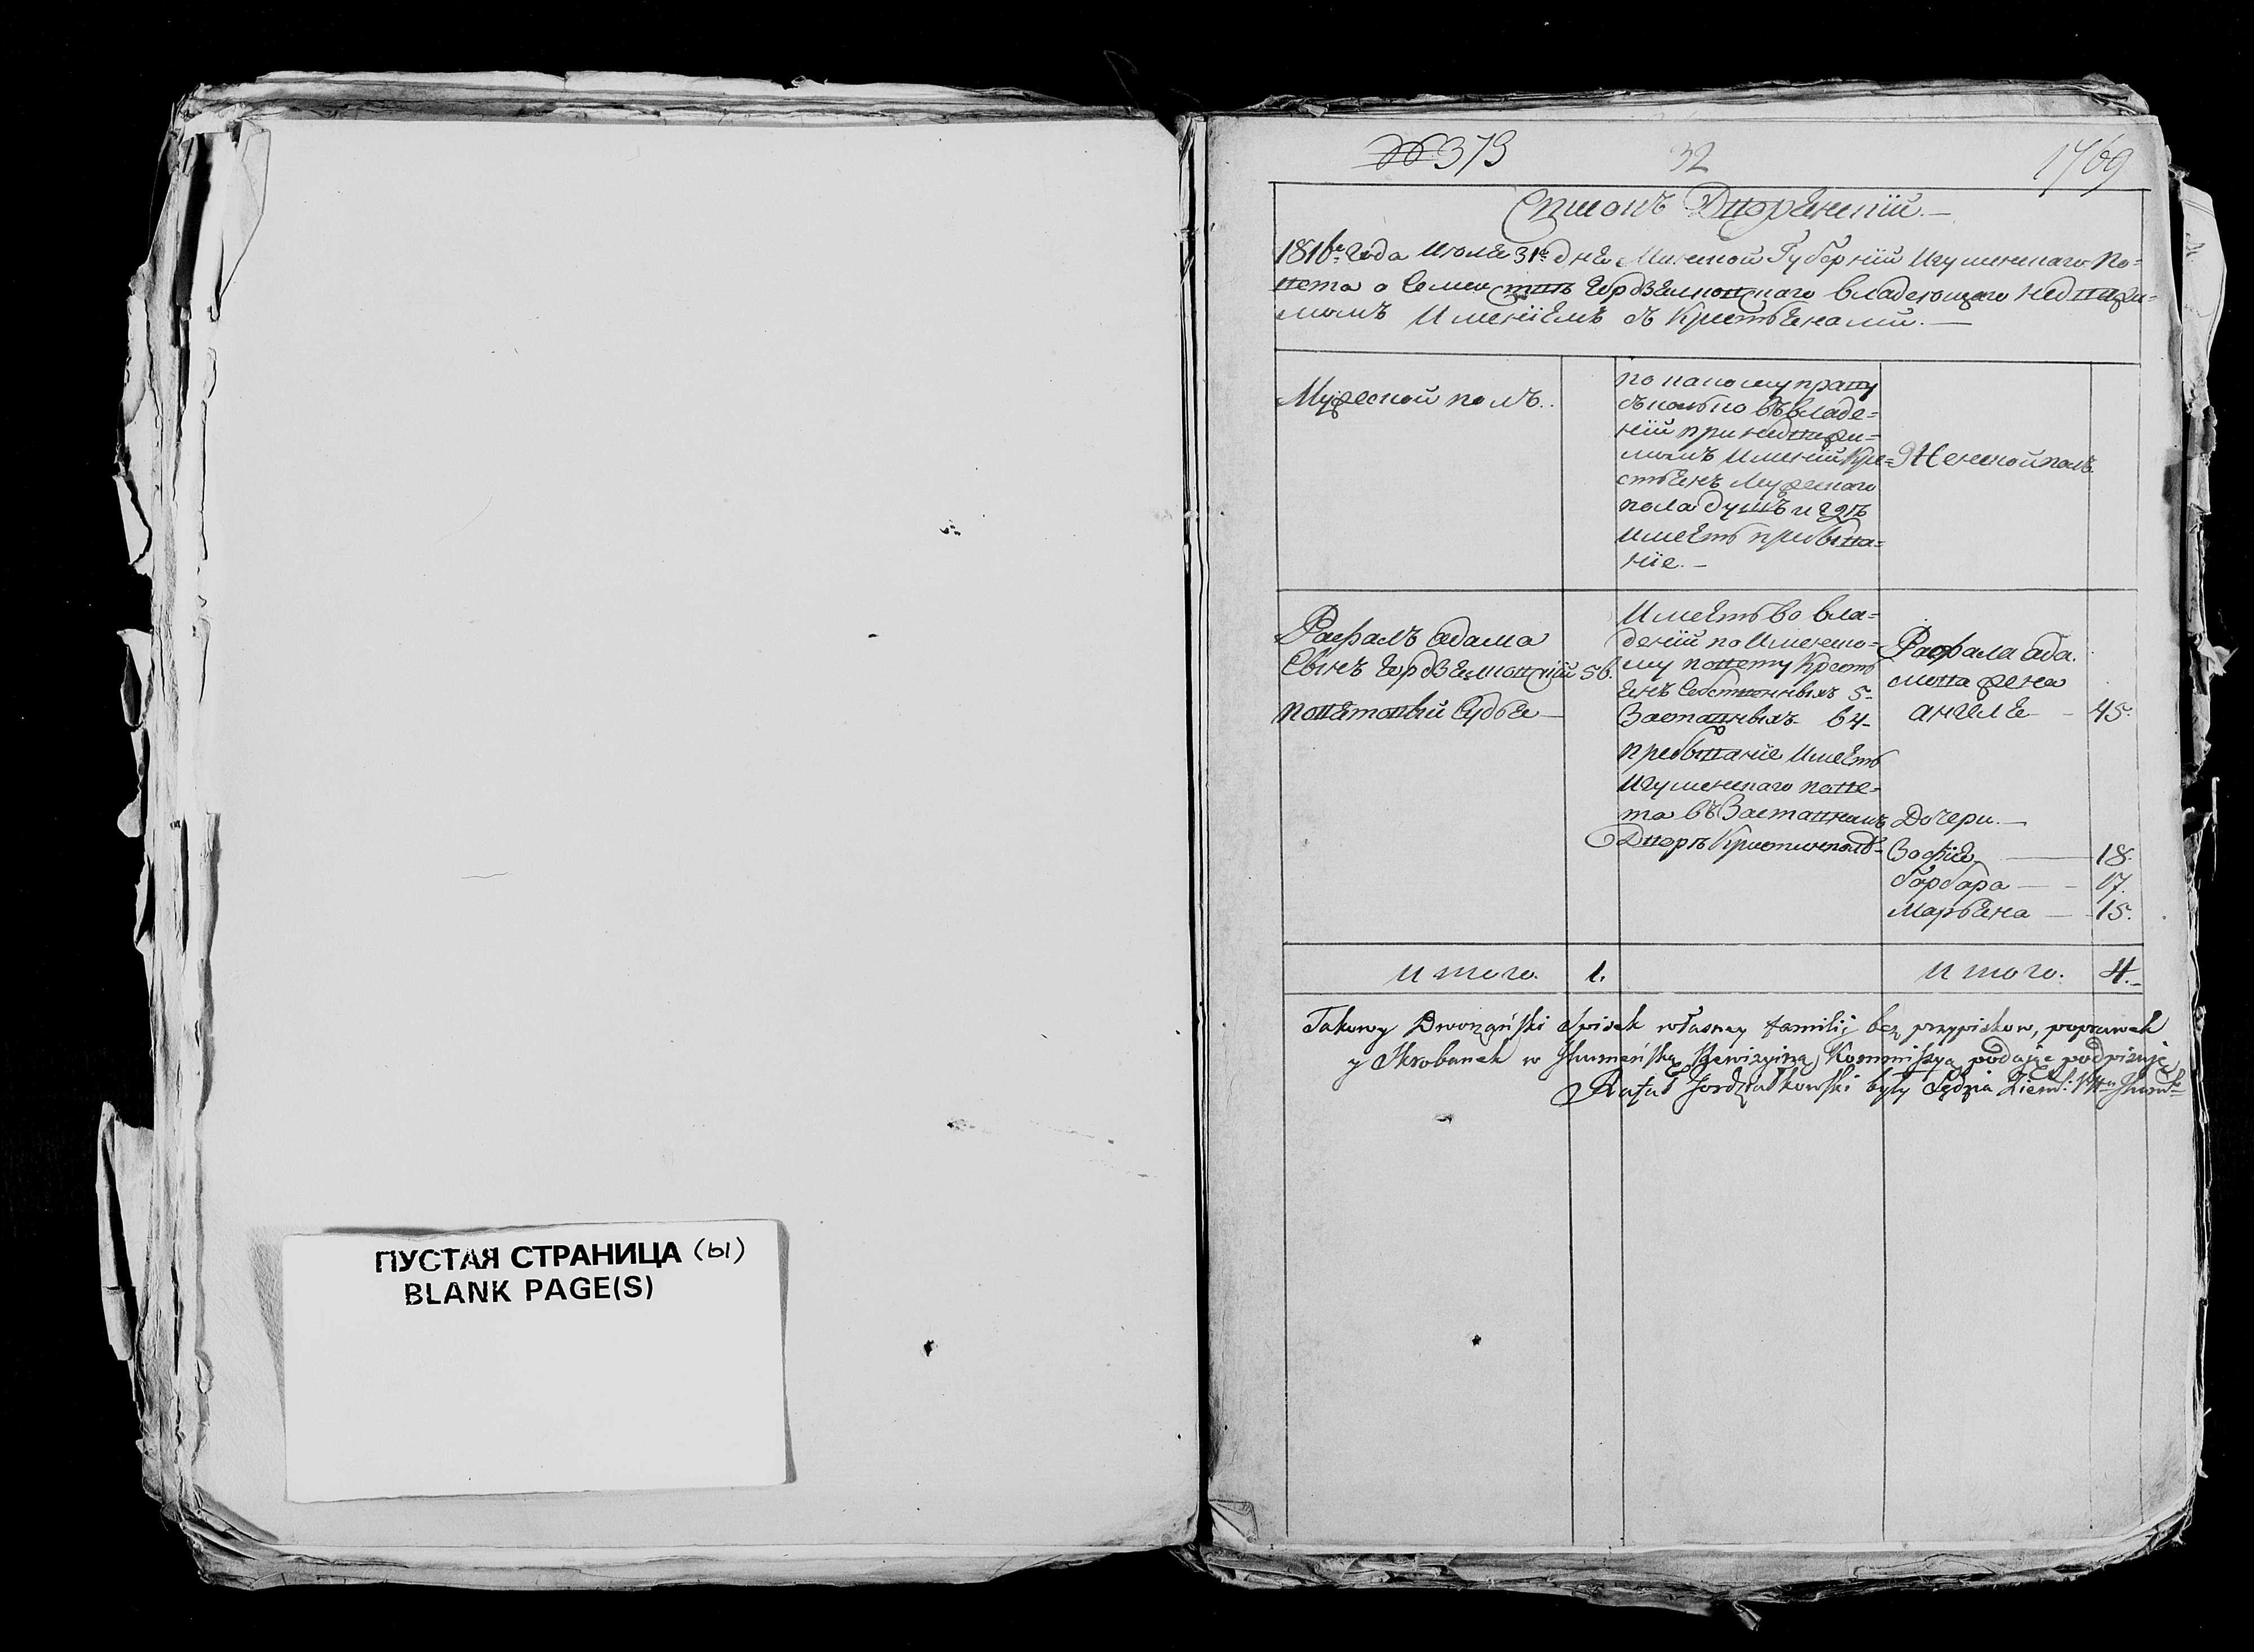 № 373
32
1769
Списокъ Дворянскій.—
1816го Года Июля 31го дня Минской Губерніи Игуменскаго По=
вета о Семействе Гордзялковскаго владеющаго недвижи=
момъ Именіемъ съ Крестьянами.—
Мужеской полъ.
по какому праву
сколько въ владе=
ніи при недвижи=
момъ Именіи Кре=
стьянъ Мужескаго
пола душъ и где
имеетъ пребыва=
ніе.—
Женской полъ.
Рафалъ Адама
Сынъ Гордзялковскій 56.
поветовый Судья—
Имеетъ во вла=
деніи по Именно=
му повету Крестъ
янъ Собственныхъ 5-
Заставныхъ 64-
пребываніе имеетъ
Игуменскаго пове=
та въ Заставномъ
Дворе Кристинполь-
Рафала Ада.
мова жена
Ангеля — 45.
Дочери.—
Зофія — 18.
Барбара — 17.
Марьяна — 15.
итого. 1.
итого. 4.-
Takowy Dworzański Spisek własney familii bez przypiskow, poprawek
y Skrobanek w Jhumeńską Rewizyiną Kommissyą podaiąc podpisuię
Rafał Jordziałkowski były Sędzia Ziem:
ПУСТАЯ СТРАНИЦА (Ы)
BLANK PAGE(S)